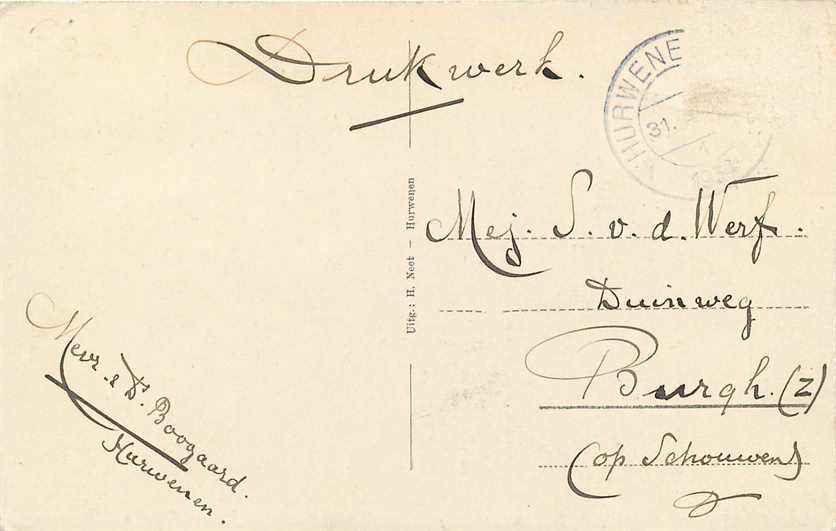 Drukwerk.
HURWENE
31.
Uitg.: H. Neet — Hurwenen
Mej. S. v. d. Werf.
Duinweg
Burgh. (Z)
(op Schouwen)
Mevr. 
Boogaard.
Hurwenen.